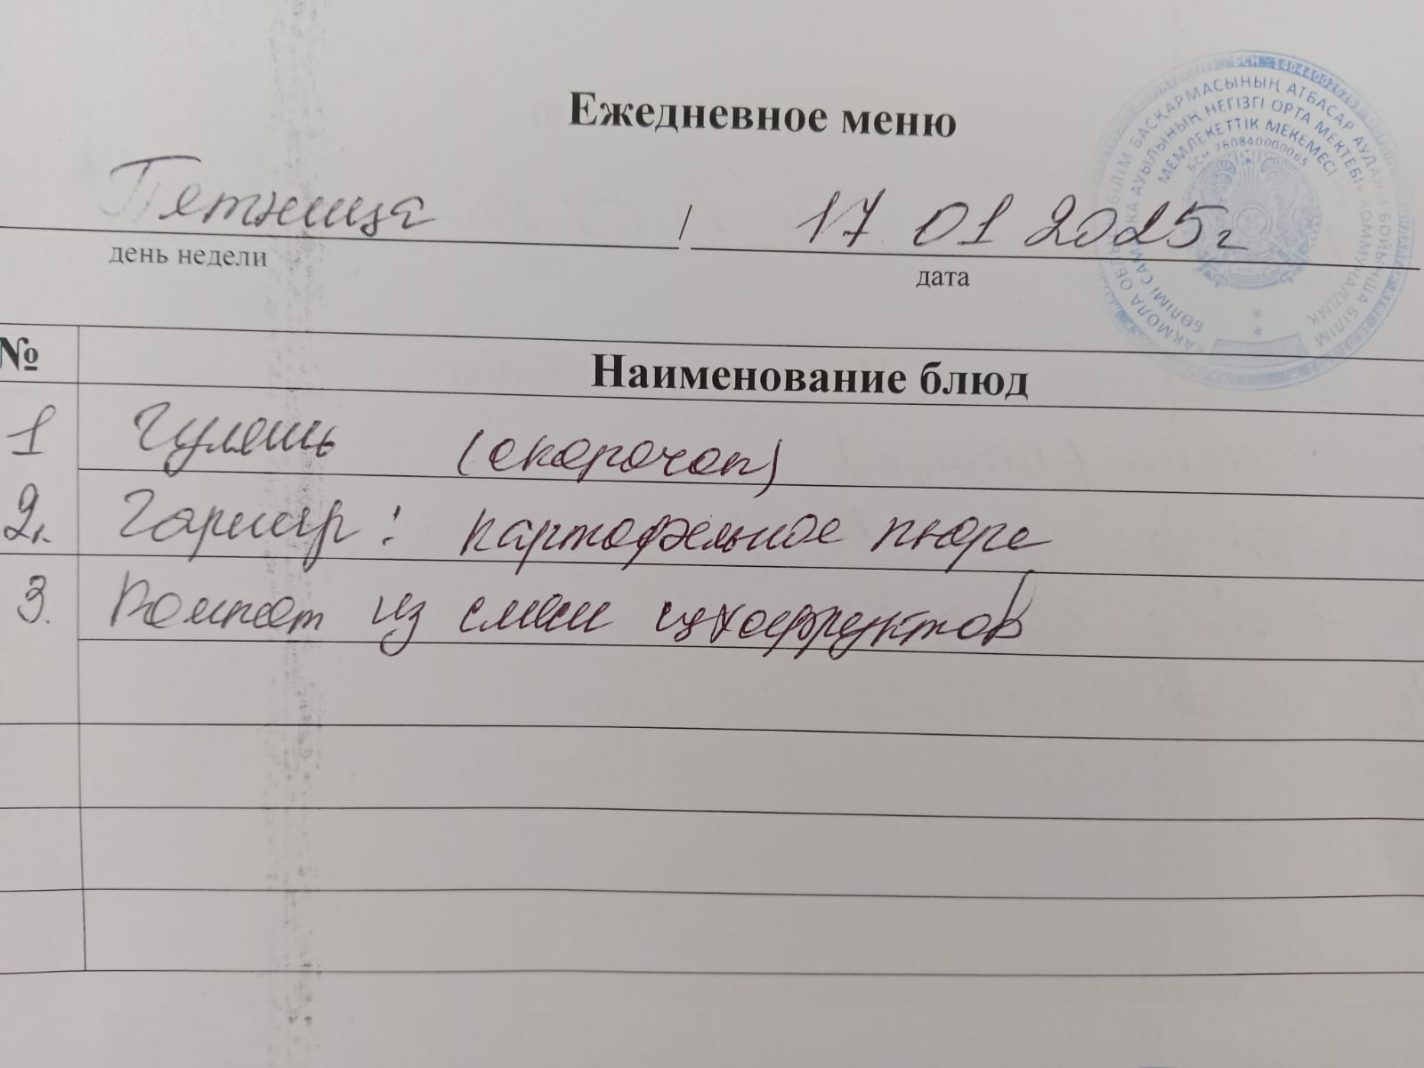 Ежедневное меню
Пятница / 17 01 2025г
день недели дата
№ Наименование блюд
1 Гуляшь (окорочоп)
2. Гарнир: картофельное пюре
3. Компот из смеси сухофруктов
БАСҚАРМАСЫНЫҢ АТБАСАР АУДАНЫ БОЙЫНША БІЛІМ
АУЫЛЫНЫҢ НЕГІЗГІ ОРТА МЕКТЕБІ» КОММУНАЛДЫҚ
МЕМЛЕКЕТТІК МЕКЕМЕСІ
БСН 760840000065